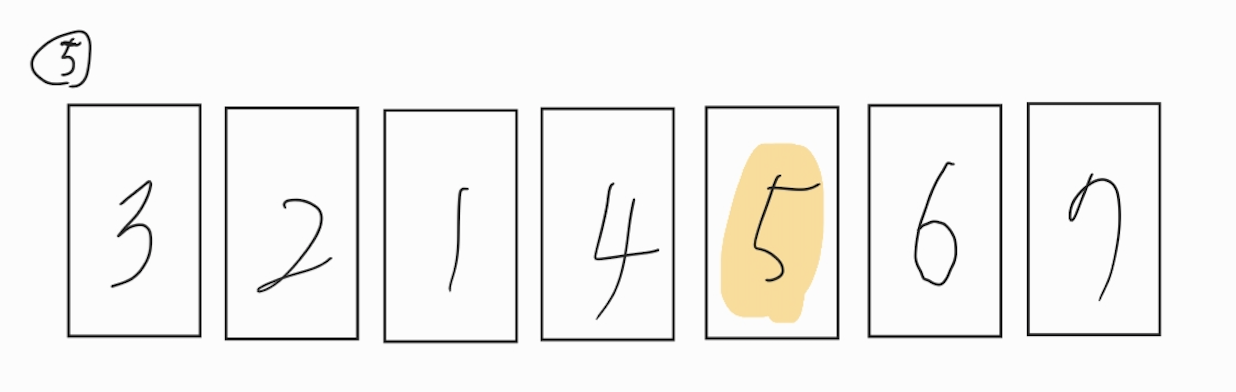 ⑤
3 2 1 4 5 6 7